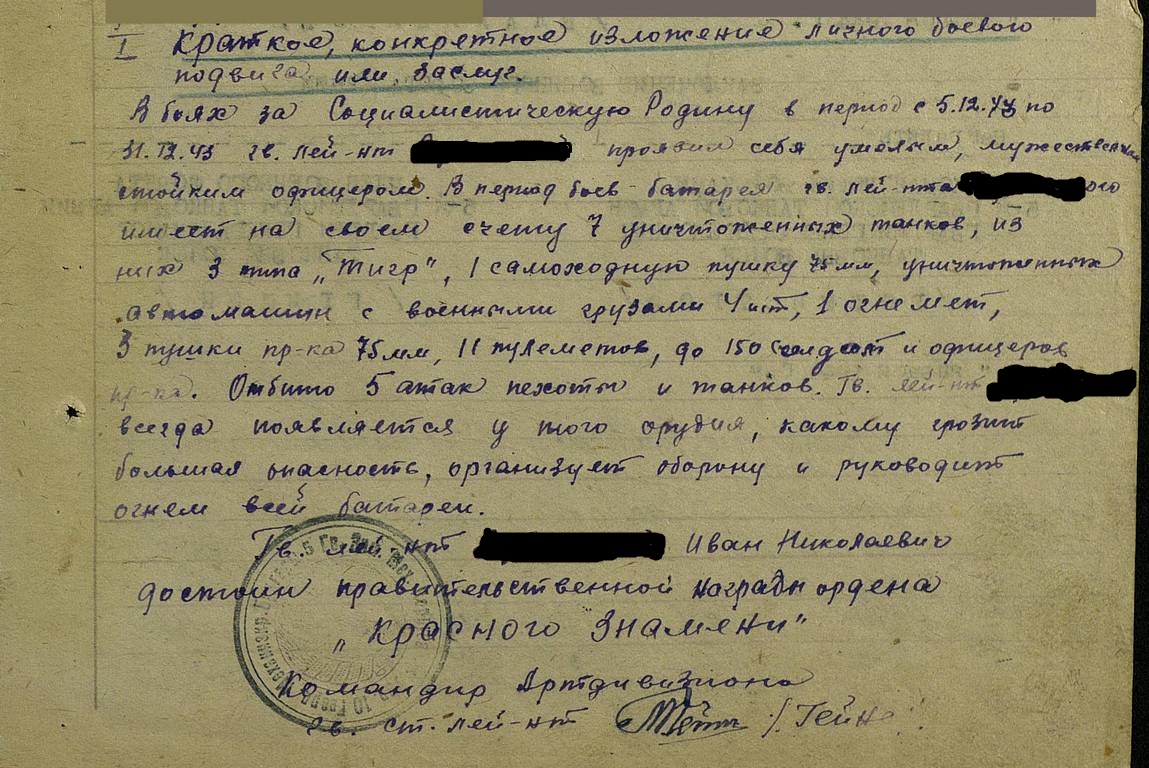 I Краткое, конкретное изложение личного боевого
подвига или заслуг.
В боях за Социалистическую Родину в период с 5.12.43 по
31.12.43 гв. лей-нт проявил себя умелым, мужественным
стойким офицером. В период боев батарея гв. лей-нта ого
имеет на своем счету 7 уничтоженных танков, из
них 3 типа „Тигр", 1 самоходную пушку 75 мм, уничтоженных
автомашин с военными грузами 4 шт, 1 огнемет,
3 пушки пр-ка 75 мм, 11 пулеметов, до 150 солдат и офицеров
пр-ка. Отбито 5 атак пехоты и танков. Гв. лей-нт
всегда появляется у того орудия, какому грозит
большая опасность, организует оборону и руководит
огнем всей батареи.
Гв. лей-нт Иван Николаевич
достоин правительственной награды ордена
„Красного Знамени"
Командир Артдивизиона
гв. ст. лей-нт /Гейн